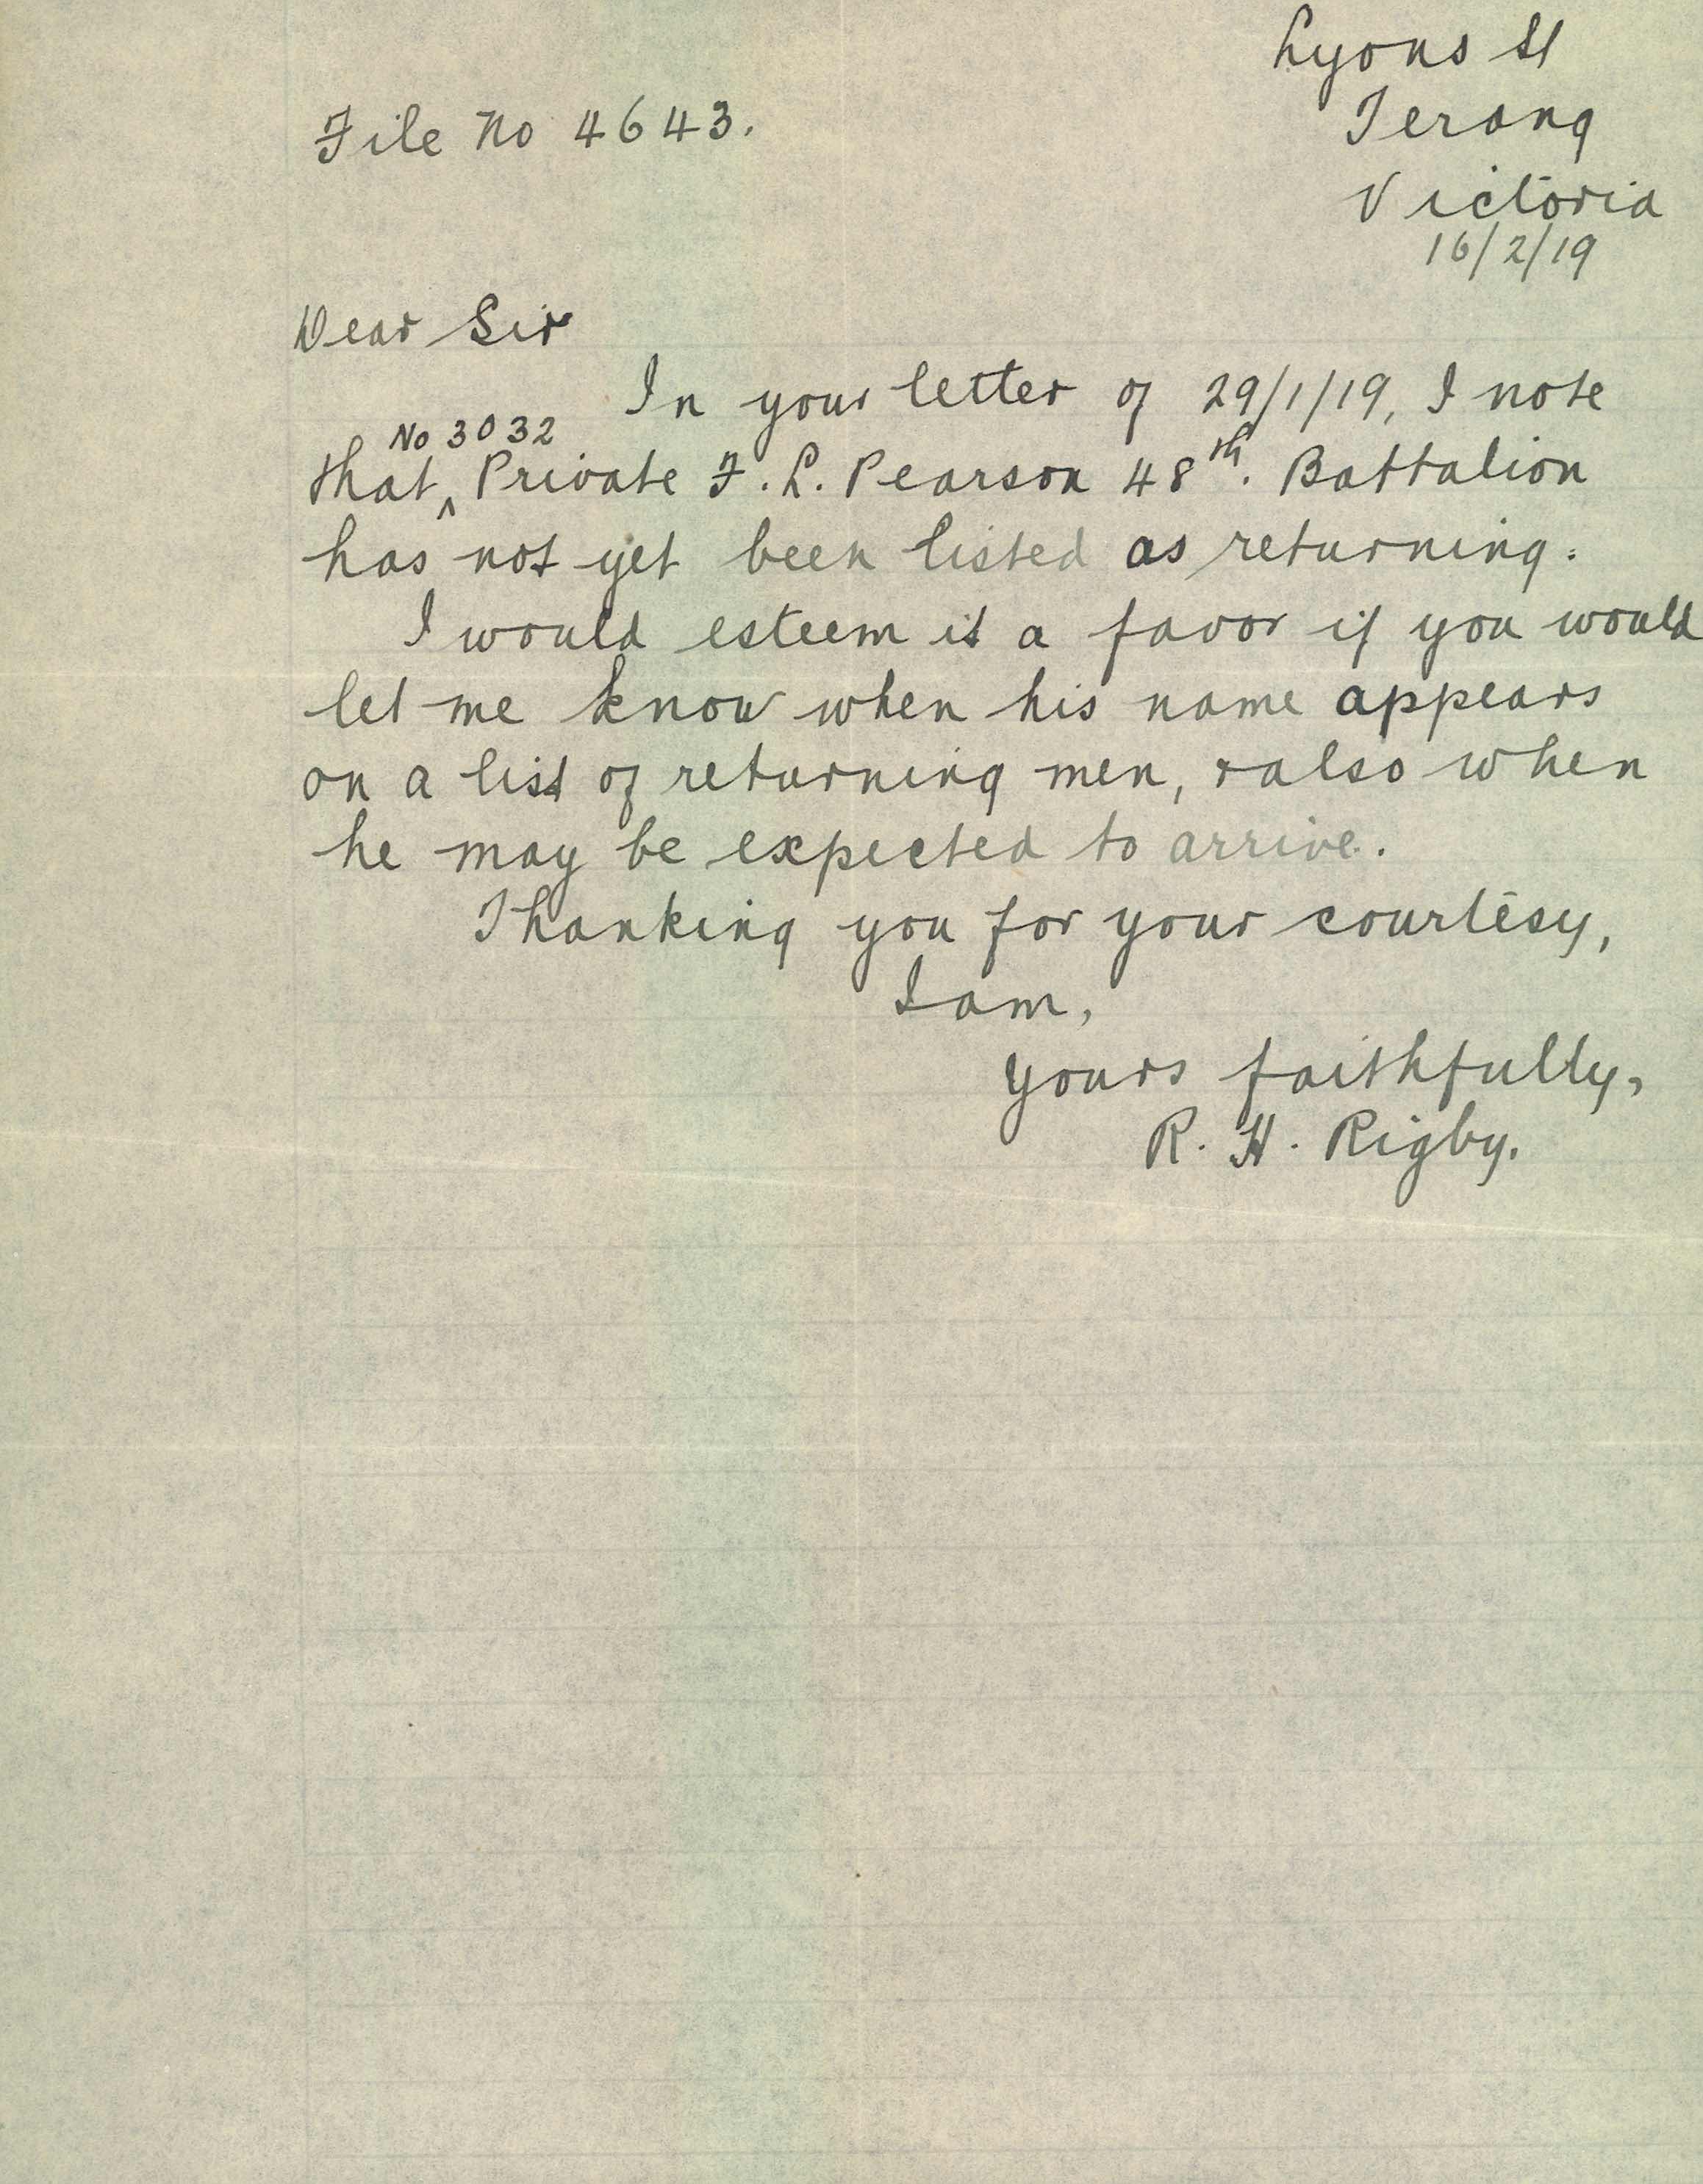 Lyons St
File No 4643.
Terang
Victoria
16/2/19
Dear Sir
In your letter of 29/1/19, I note
No 3032
that ^ Private F. L. Pearson 48th. Battalion
has not yet been listed as returning.
I would esteem it a favor if you would
let me know when his name appears
on a list of returning men, & also when
he may be expected to arrive.
Thanking you for your courtesy,
I am,
Yours faithfully,
R. H. Rigby.